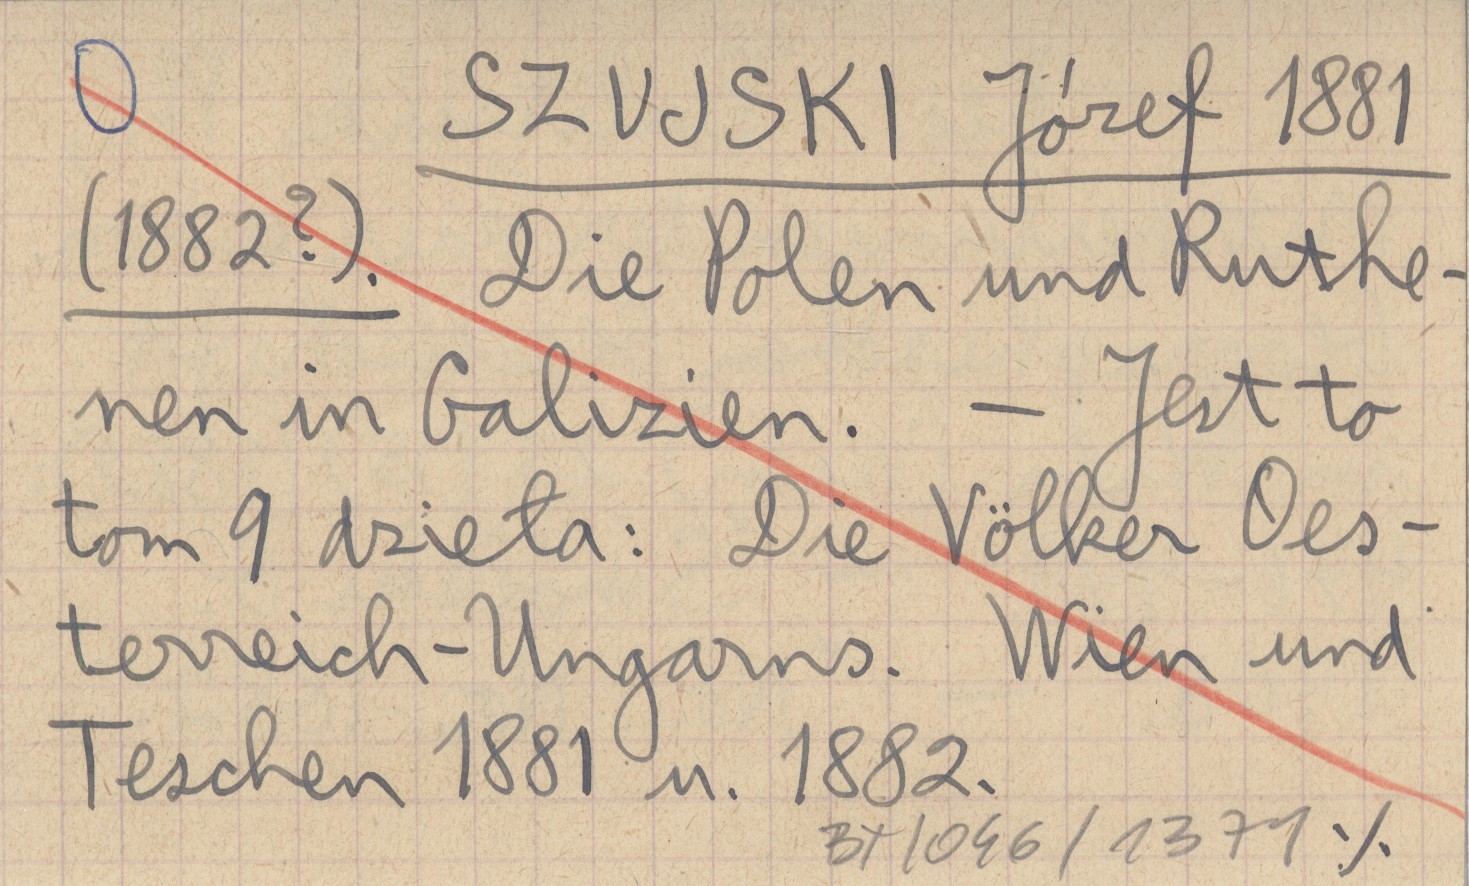 SZUJSKI Józef 1881
(1882?). Die Polen und Ruthe-
nen in Galizien. — Jest to
tom 9 dzieła: Die Völker Oes-
terreich-Ungarns. Wien und
Teschen 1881 u. 1882.
·/.